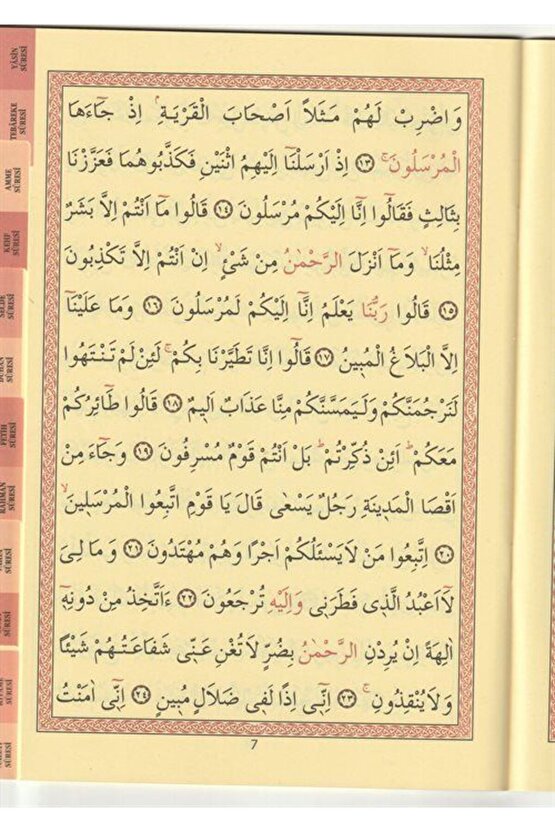 وَاضْرِبْ لَهُمْ مَثَلًا اَصْحَابَ الْقَرْيَةِۢ اِذْ جَٓاءَهَا
الْمُرْسَلُونَۚ ﴿١٣﴾ اِذْ اَرْسَلْنَٓا اِلَيْهِمُ اثْنَيْنِ فَكَذَّبُوهُمَا فَعَزَّزْنَا
بِثَالِثٍ فَقَالُٓوا اِنَّٓا اِلَيْكُمْ مُرْسَلُونَ ﴿١٤﴾ قَالُوا مَٓا اَنْتُمْ اِلَّا بَشَرٌ
مِثْلُنَاۙ وَمَٓا اَنْزَلَ الرَّحْمٰنُ مِنْ شَيْءٍۙ اِنْ اَنْتُمْ اِلَّا تَكْذِبُونَ
﴿١٥﴾ قَالُوا رَبُّنَا يَعْلَمُ اِنَّٓا اِلَيْكُمْ لَمُرْسَلُونَ ﴿١٦﴾ وَمَا عَلَيْنَٓا
اِلَّا الْبَلَاغُ الْمُب۪ينُ ﴿١٧﴾ قَالُٓوا اِنَّا تَطَيَّرْنَا بِكُمْۚ لَئِنْ لَمْ تَنْتَهُوا
لَنَرْجُمَنَّكُمْ وَلَيَمَسَّنَّكُمْ مِنَّا عَذَابٌ اَل۪يمٌ ﴿١٨﴾ قَالُوا طَٓائِرُكُمْ
مَعَكُمْۜ اَئِنْ ذُكِّرْتُمْۜ بَلْ اَنْتُمْ قَوْمٌ مُسْرِفُونَ ﴿١٩﴾ وَجَٓاءَ مِنْ
اَقْصَا الْمَد۪ينَةِ رَجُلٌ يَسْعٰى قَالَ يَا قَوْمِ اتَّبِعُوا الْمُرْسَل۪ينَۙ
﴿٢٠﴾ اِتَّبِعُوا مَنْ لَا يَسْـَٔلُكُمْ اَجْرًا وَهُمْ مُهْتَدُونَ ﴿٢١﴾ وَمَا لِيَ
لَٓا اَعْبُدُ الَّذ۪ي فَطَرَن۪ي وَاِلَيْهِ تُرْجَعُونَ ﴿٢٢﴾ ءَاَتَّخِذُ مِنْ دُونِه۪ٓ
اٰلِهَةً اِنْ يُرِدْنِ الرَّحْمٰنُ بِضُرٍّ لَا تُغْنِ عَنّ۪ي شَفَاعَتُهُمْ شَيْـًٔا
وَلَا يُنْقِذُونِۚ ﴿٢٣﴾ اِنّ۪ٓي اِذًا لَف۪ي ضَلَالٍ مُب۪ينٍ ﴿٢٤﴾ اِنّ۪ٓي اٰمَنْتُ
7
YÂSİN
SÛRESİ
TEBÂREKE
SÛRESİ
AMME
SÛRESİ
KEHF
SÛRESİ
SECDE
SÛRESİ
DUHAN
SÛRESİ
FETİH
SÛRESİ
RAHMAN
SÛRESİ
SÛRESİ
SÛRESİ
SÛRESİ
SÛRESİ